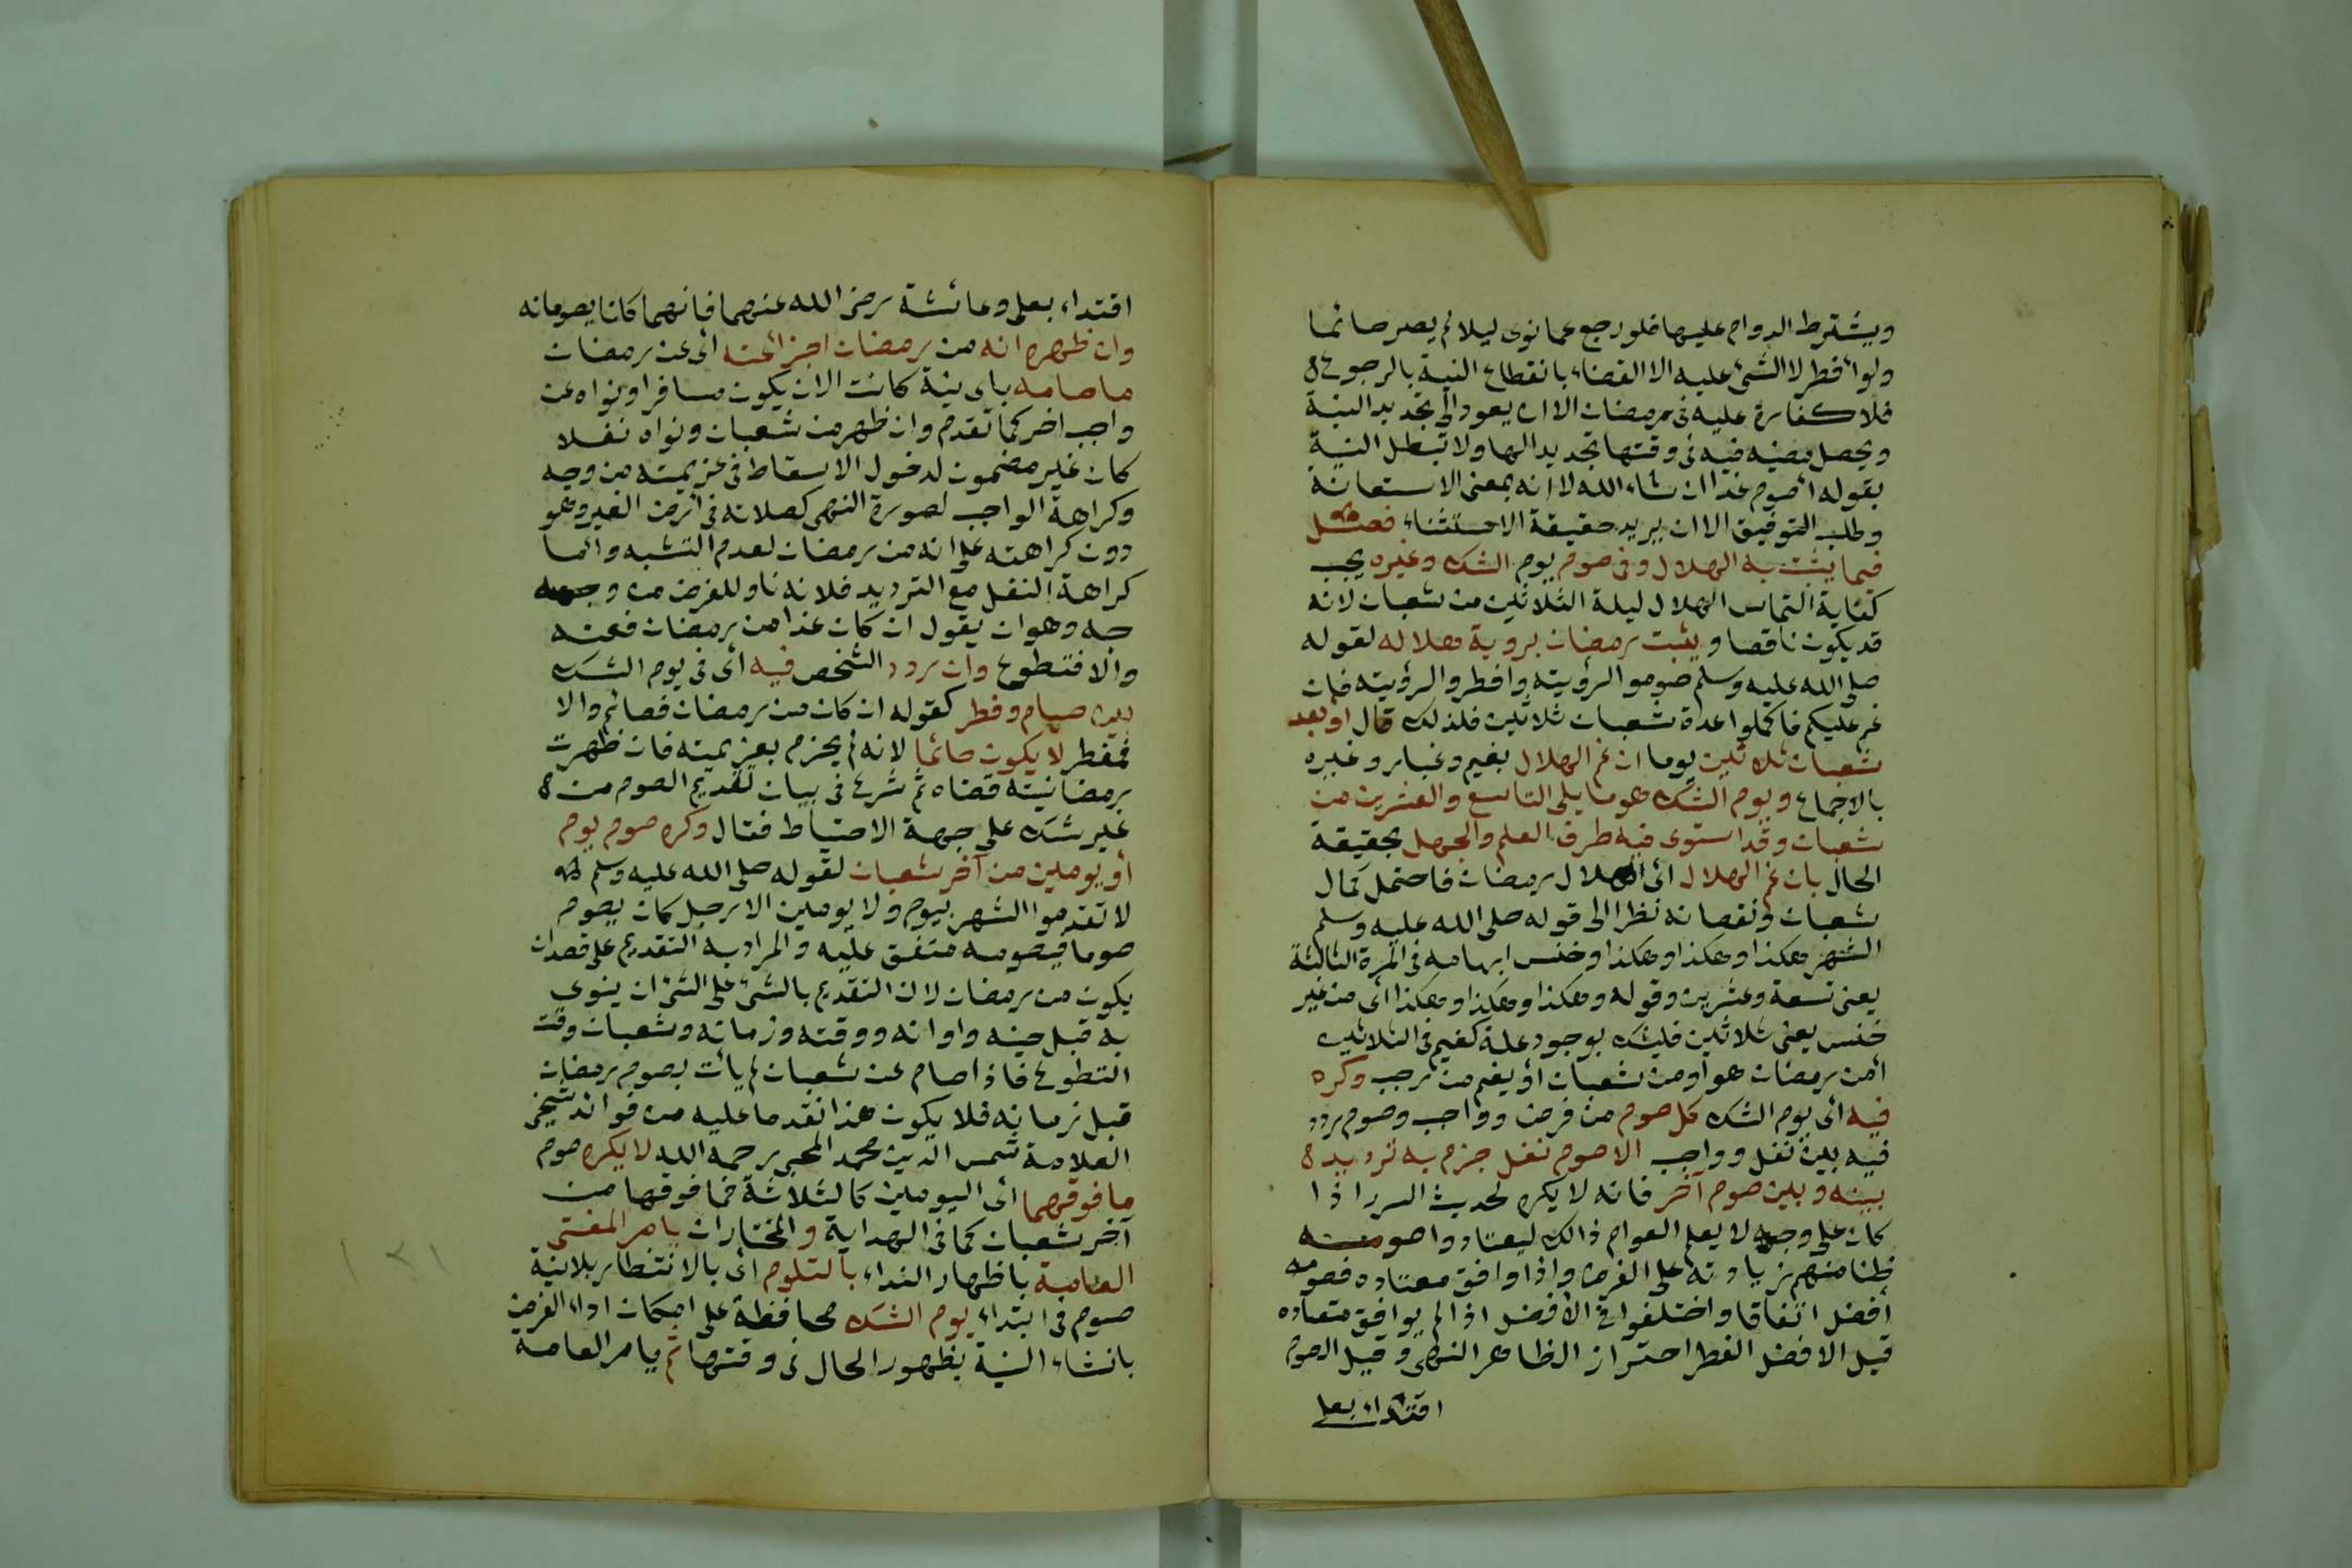 ويشترط الدوام عليها فلو رجع عما نوى ليلا لم يصر صائما
ولو أفطر لا شئ عليه الا القضاء بانقطاع النية بالرجوع
فلا كفارة عليه فى رمضان الا ان يعود الى تجديد النية
ويحصل مضيه فيه فى وقتها تجديدا لها ولا تبطل النية
بقوله أصوم غدا ان شاء الله لانه بمعنى الاستعانة
وطلب التوفيق الا ان يريد حقيقة الاستثناء فصل
فيما يثبت به الهلال وفى صوم يوم الشك وغيره يجب
كفاية التماس الهلال ليلة الثلاثين من شعبان لانه
قد يكون ناقصا ويثبت رمضان بروية هلاله لقوله
صلى الله عليه وسلم صوموا لرؤيته وافطروا لرؤيته فان
غم عليكم فاكملوا عدة شعبان ثلاثين فلذلك قال او بعد
شعبان ثلاثين يوما ان غم الهلال بغيم وغبار وغيره
بالاجماع ويوم الشك هو ما يلى التاسع والعشرين من
شعبان وقد استوى فيه طرف العلم والجهل بحقيقة
الحال بان غم الهلال أى هلال رمضان فاحتمل كمال
شعبان ونقصانه نظرا الى قوله صلى الله عليه وسلم
الشهر هكذا وهكذا وهكذا وخنس ابهامه فى المرة الثالثة
يعنى تسعة وعشرين وقوله وهكذا وهكذا وهكذا أى من غير
خنس يعنى ثلاثين فليشك بوجود علة كغيم فى الثلاثين
أمن رمضان هو أو من شعبان أو يغم من رجب وكره
فيه أى يوم الشك كل صوم من فرض وواجب وصوم ردد
فيه بين نفل وواجب الا صوم نفل جزم به ترديد
بينه وبين صوم آخر فانه لا يكره لحديث السرر اذا
كان على وجه لا يعلم العوام ذالك ليعتادوا صومه
ظنا منهم زيادته على الفرض واذا وافق معتاده فصومه
أفضل اتفاقا واختلفوا فى الأفضل اذا لم يوافق متعاده
قيل الافضل الفطر احتراز الظاهر النهى وقيل الصوم
اقتداء بعلى
اقتداء بعلى وعائشة رضى الله عنهما فانهما كانا يصومانه
وان ظهر انه من رمضان اجزأ عنه أى عن رمضان
ما صامه باى نية كانت الا ان يكون مسافرا ونواه عن
واجب اخر كما تقدم وان ظهر من شعبان ونواه نفلا
كان غير مضمون لدخول الاسقاط فى عزيمته من وجه
وكراهة الواجب لصورة النهى كصلاته فى أرض الغير وهو
دون كراهته على انه من رمضان لعدم التشبه وانما
كراهة النفل مع الترديد فلانه ناو للفرض من وجهه
جه وهو ان يقول ان كان غدا من رمضان فعنه
والا فتطوع وان ردد الشخص فيه أى فى يوم الشك
بين صيام وفطر كقوله ان كان من رمضان فصائم والا
فمفطر لا يكون صائما لانه لم يجزم بعزيمته فان ظهرت
رمضانيته قضاه ثم شرع فى بيان تقديم الصوم من
غير شك على جهة الاحتياط فقال وكره صوم يوم
أو يومين من آخر شعبان لقوله صلى الله عليه وسلم
لا تقدموا الشهر بيوم ولا يومين الا رجل كان يصوم
صوما فيصومه متفق عليه والمراد به التقديم على قصد ان
يكون من رمضان لان التقديم بالشئ على الشئ ان ينوى
به قبل حينه واوانه ووقته وزمانه وشعبان وقت
التطوع فاذا صام عن شعبان لم يأت بصوم رمضان
قبل زمانه فلا يكون هذا تقدما عليه من فوائد شيخى
العلامة شمس الدين محمد المحبى رحمه الله لا يكره صوم
ما فوقهما أى اليومين كالثلاثة فما فوقها من
آخر شعبان كما فى الهداية والمختاران يامر المفتى
العامة باظهار النداء بالتلوم أى بالانتظار بلانية
صوم فى ابتداء يوم الشك محافظة على امكان اداء الفرض
بانشاء النية بظهور الحال فى وقتها ثم يامر العامة